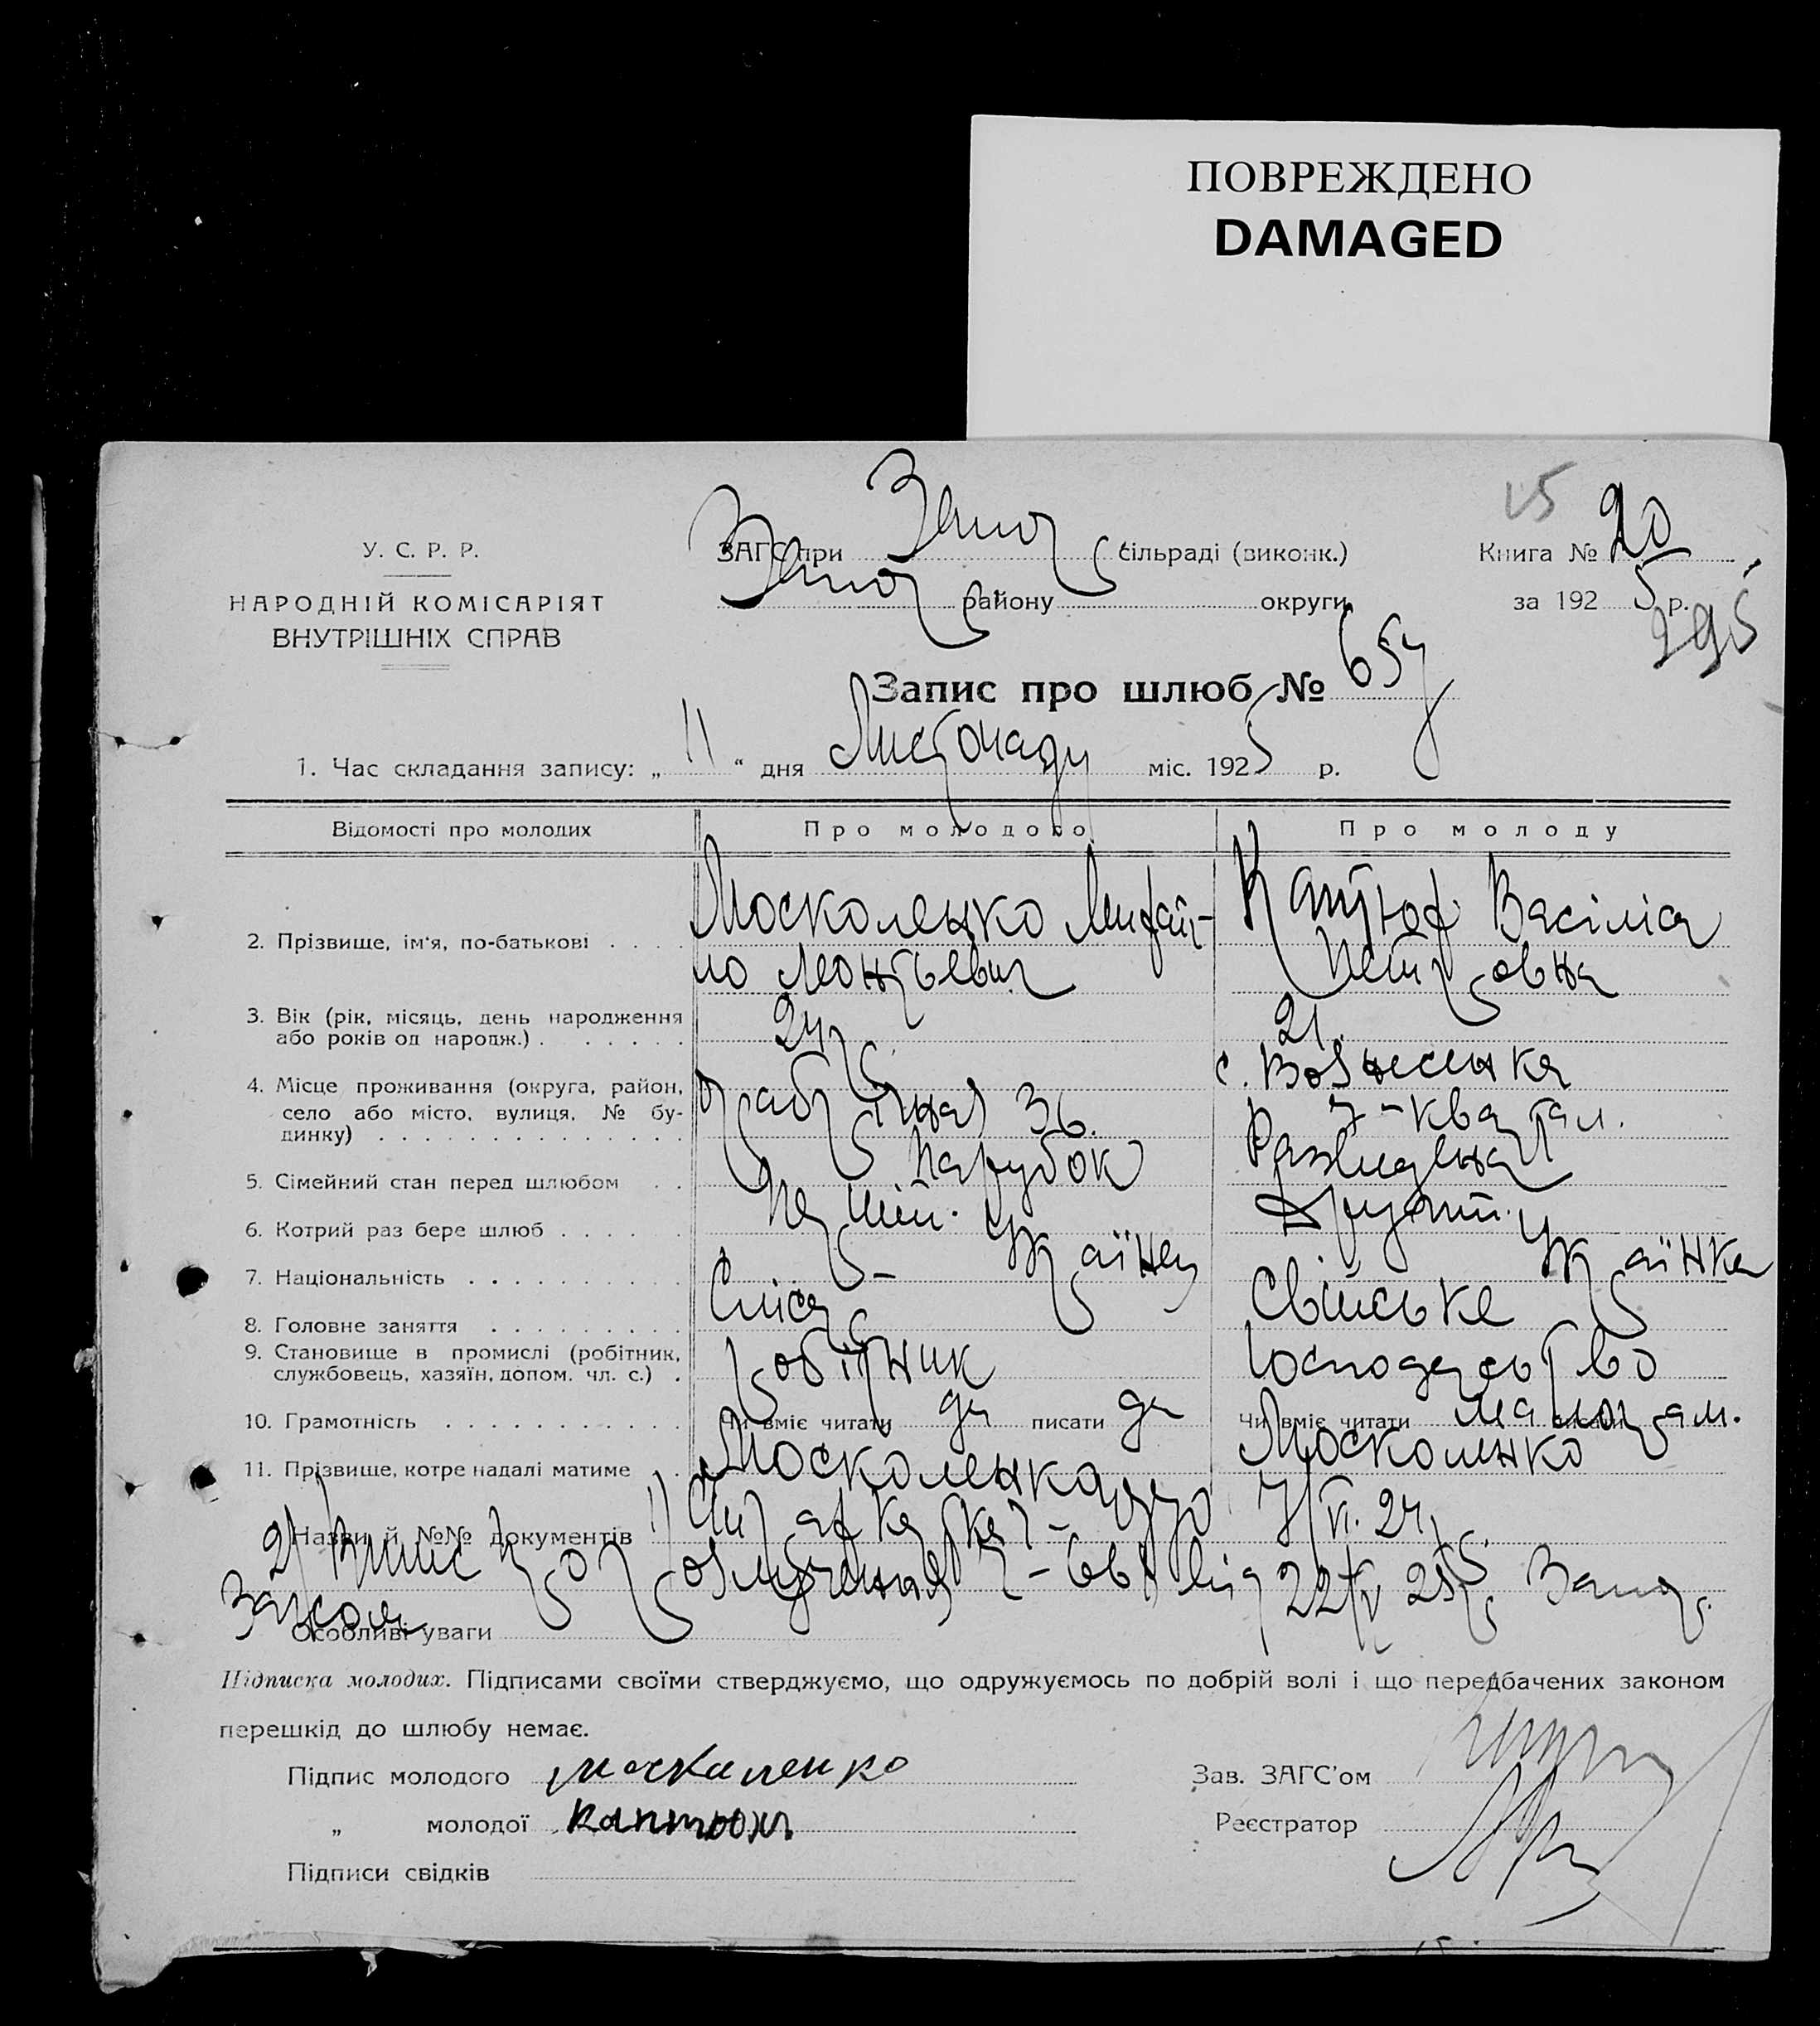 ПОВРЕЖДЕНО
DAMAGED
У. С. Р. Р.
НАРОДНІЙ КОМІСАРІЯТ
ВНУТРІШНІХ СПРАВ
ЗАГС при Запор сільраді (виконк.)
Запор району округи
Книга № 20
за 1925 р.
295
Запис про шлюб № 657
1. Час складання запису: „11“ дня Листопаду міс. 1925 р.
Відомості про молодих Про молодого Про молоду
2. Прізвище, ім'я, по-батькові . . . . Москоленко Михай- Каптюх Василіса
ло Леонтьевич Петровна
3. Вік (рік, місяць, день народження
або років од народж.) . . . . . . 24 21.
4. Місце проживання (округа, район,
село або місто, вулиця, № бу-
динку) . . . . . . . . . . . . . . 36. с. Вознесенка
7-квартал.
5. Сімейний стан перед шлюбом . . Парубок Разведена
6. Котрий раз бере шлюб . . . . . Перший. Другий.
7. Національність . . . . . . . . . . Українец Українка
8. Головне заняття . . . . . . . . . Слюсар Сільське
9. Становище в промислі (робітник,
службовець, хазяїн, допом. чл. с.) . робітник господарство
10. Грамотність . . . . . . . . . . . Чи вміє читати да писати да Чи вміє читати малограм.
11. Прізвище, котре надалі матиме . Москоленко Москоленко
Назви й №№ документів 1) 7/VI. 24
2) Випис про Запор.
Особливі уваги
Підписка молодих. Підписами своїми стверджуємо, що одружуємось по добрій волі і що передбачених законом
перешкід до шлюбу немає.
Підпис молодого москаленко
„ молодої каптюх
Підписи свідків
Зав. ЗАГС'ом
Реєстратор